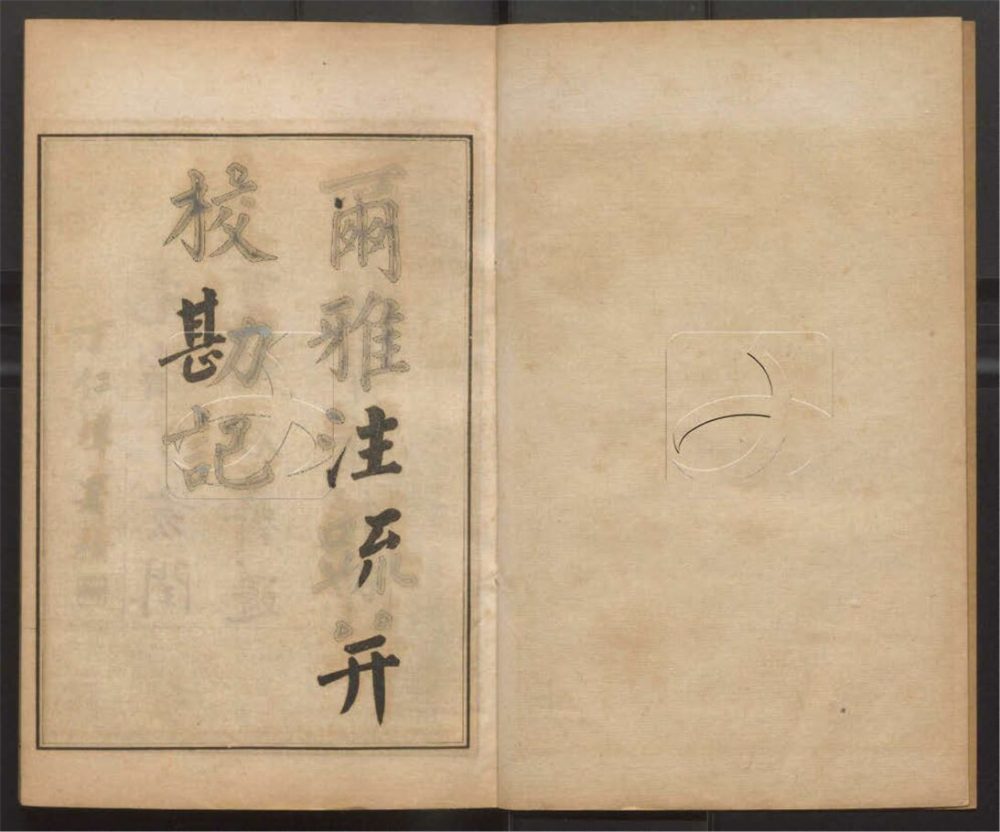 爾雅注疏并
校勘記